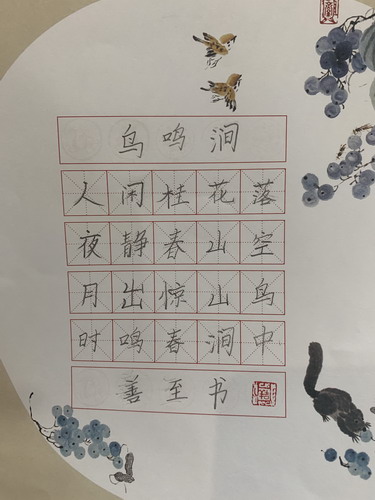 鸟鸣涧
人闲桂花落
夜静春山空
月出惊山鸟
时鸣春涧中
善至书